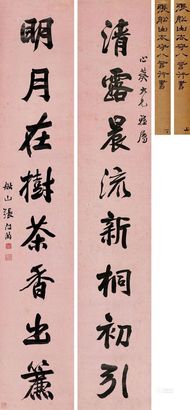 清露晨流新桐初引
心葵大兄雅屬
明月在樹茶香出簾
船山張問陶
張船山太守八言行書
張船山太守八言行書